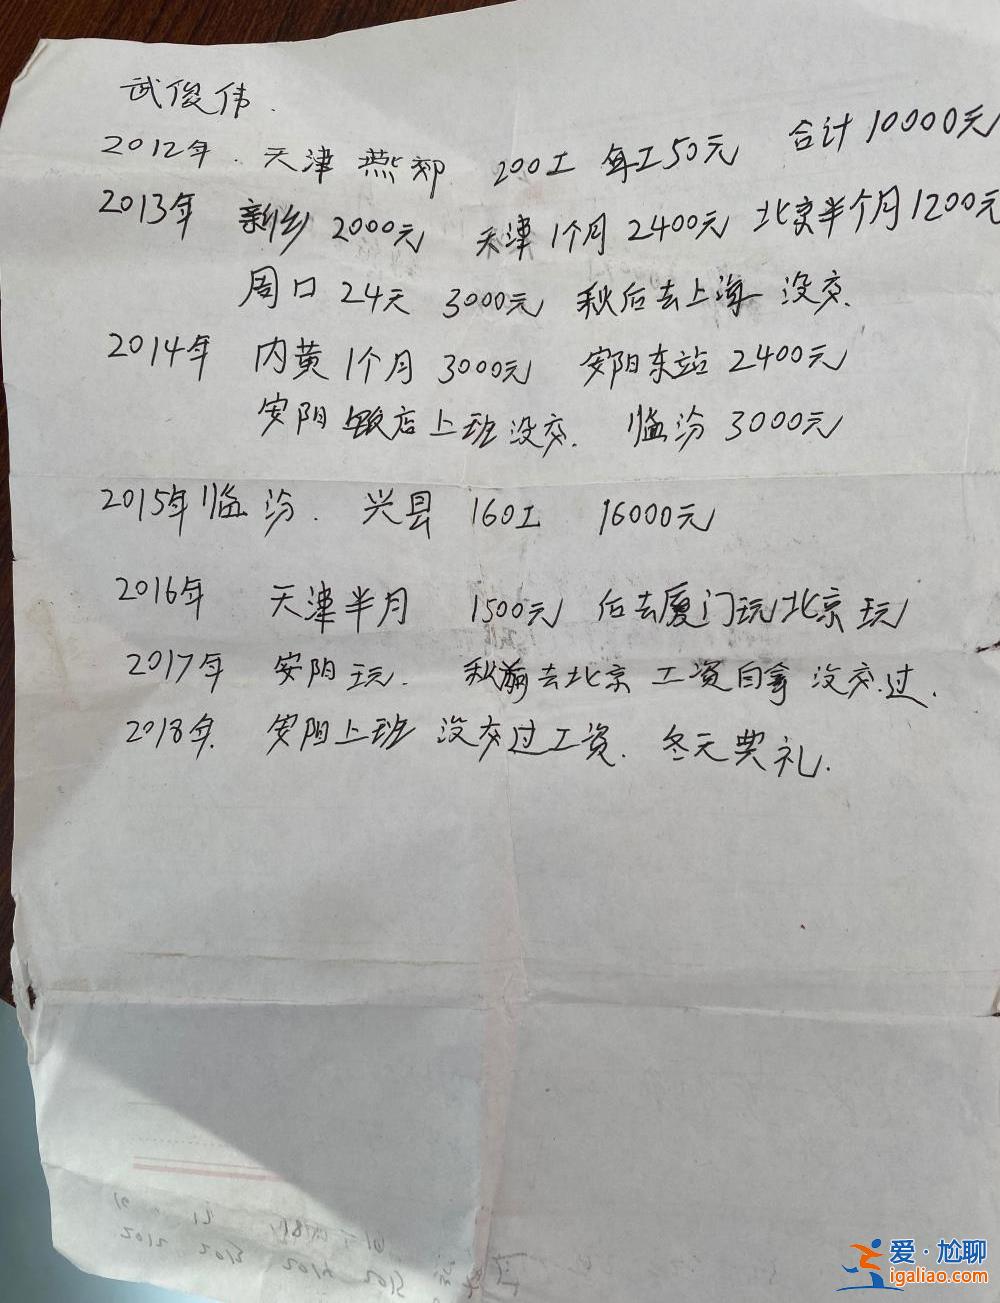 武俊伟.
2012年. 天津 燕郊 200工 每工50元 合计10000元
2013年 新乡 2000元 天津1个月 2400元 北京半个月1200元
周口 24天 3000元 秋后去上海 没交.
2014年 内黄1个月 3000元 安阳东站 2400元
安阳 饭店上班没交. 临汾 3000元
2015年临汾. 兴县 160工 16000元
2016年 天津半月 1500元 后去厦门玩北京玩
2017年 安阳玩. 秋前去北京 工资自拿 没交过.
2018年 安阳上班 没交过工资. 冬天典礼.
爱·尬聊
igaliao.com